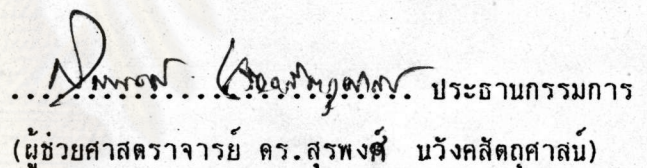 ........................................ ประธานกรรมการ
(ผู้ช่วยศาสตราจารย์ ดร.สุรพงศ์ นวังคสัตถุศาสน์)